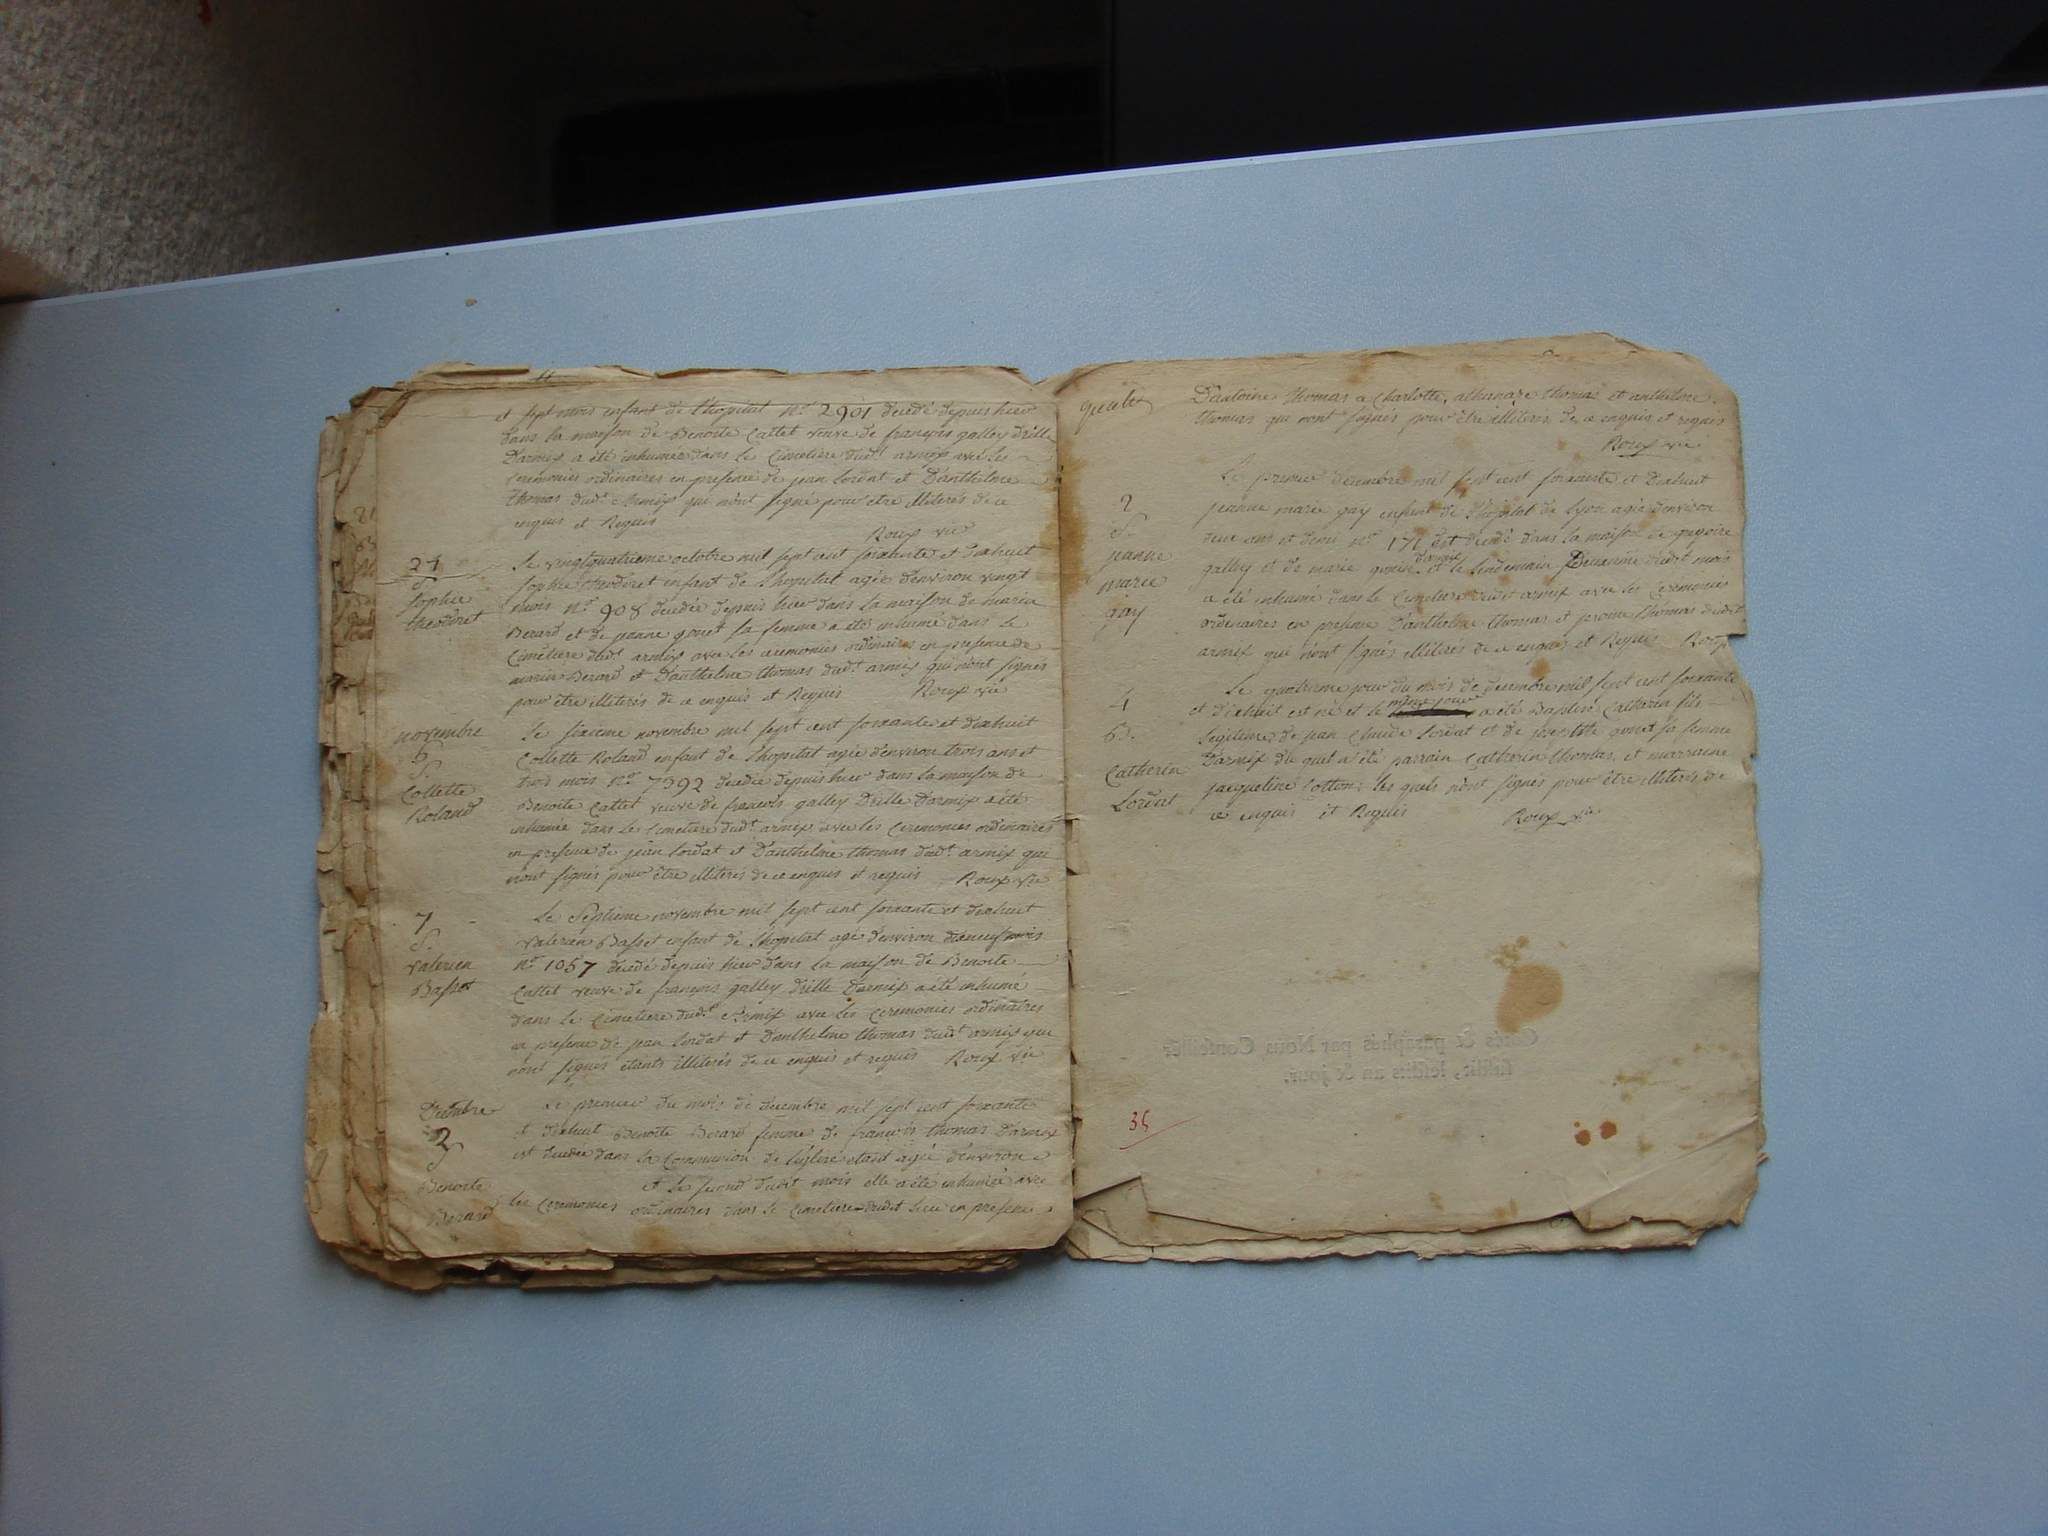 et sept mois enfant de l'hopital n.º 2901 decedé depuis hier
dans la maison de Benoite Cattet veuve de françois galley drille
D'armix a été inhumé dans le Cimetiere dud.t armix avec les
ceremonies ordinaires en presence de jean Lordat et D'anthelme
thomas dud.t Armix qui n'ont signé pour etre illiterés de ce
enquis et Requis
Roux vic
24
S.
Sophie
theodoret
Le vingtquatrieme octobre mil sept cent soixante et dixhuit
Sophie theodoret enfant de l'hopital agée d'environ vingt
mois n.º 908 decedée depuis hier dans la maison de marin
Berard et de jeanne gonet sa femme a été inhumé dans le
Cimetiere dud.t armix avec les ceremonies ordinaires en presence de
marin Berard et D'anthelme thomas dud.t armix qui n'ont signés
pour être illiterés de ce enquis et Requis Roux vic
novembre
6
S.
Collette
Roland
Le sixieme novembre mil sept cent soixante et dixhuit
Collette Roland enfant de l'hopital agée d'environ trois ans et
trois mois n.º 7392 decedée depuis hier dans la maison de
Benoite Cattet veuve de françois galley Drille D'armix a été
inhumée dans le Cimetiere dud.t armix avec les ceremonies ordinaires
en presence de jean Lordat et D'anthelme thomas dud.t armix qui
n'ont signés pour être illiterés de ce enquis et requis Roux vic
7
S.
Valerien
Basset
Le Septieme novembre mil sept cent soixante et dixhuit
Valerien Basset enfant de l'hopital agé d'environ dixneuf mois
n.º 1057 decedé depuis hier dans la maison de Benoite
Cattet veuve de françois galley drille D'armix a été inhumé
dans le Cimetiere dud.t Armix avec les Ceremonies ordinaires
en presence de jean Lordat et D'anthelme thomas dud.t armix qui
n'ont signés étants illiterés de ce enquis et requis Roux vic
Decembre
2
S
Benoite
Berard
Le premier du mois de decembre mil sept cent soixante
et dixhuit Benoite Berard femme de françois thomas D'armix
est decedée dans la Communion de l'église etant agée d'environ
et le second dudit mois elle a été inhumée avec
les Ceremonies ordinaires dans le Cimetiere dudit lieu en presence
D'antoine thomas a Charlotte, athanaze thomas et anthelme
thomas qui n'ont signés pour être illiterés de ce enquis et requis
Roux vic
2
S.
jeanne
marie
gay
Le premier decembre mil sept cent soixante et dixhuit
jeanne marie gay enfant de l'hopital de Lyon agée d'environ
deux ans et demi n.º 171 est decedé dans la maison de gregoire
galley et de marie d'armix et le lendemain Deuxieme dudit mois
a été inhumé dans le Cimetiere dudit armix avec les Ceremonies
ordinaires en presence D'anthelme thomas et thomas dudit
armix qui n'ont signés illiterés de ce enquis et Requis Roux
4
B.
Catherin
Lordat
Le quatrieme jour du mois de decembre mil sept cent soixante
et dixhuit est né et le même jour a été Baptisé Catherin fils
legitime de jean Claude Lordat et de gonet sa femme
D'armix du quel a été parrain Catherin thomas, et marraine
jacqueline Cotton; les quels n'ont signés pour être illiterés de
ce enquis et Requis Roux vic
Cotés & paraphés par Nous Conseiller
susdit, lesdits an & jour.
35